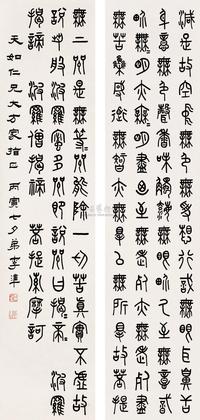 減是故空中無色無受想行識無眼耳鼻舌
身意無色聲香味觸法無眼界乃至無意識
界無無明亦無無明盡乃至無老死亦無老死盡
無苦集滅道無智亦無得以無所得故菩提
無上咒是無等咒能除一切苦真實不虛故
說般若波羅蜜多咒即說咒曰揭帝揭帝波羅
揭諦波羅僧揭諦菩提薩摩訶
天如仁兄大方家指正 丙寅七夕弟李準